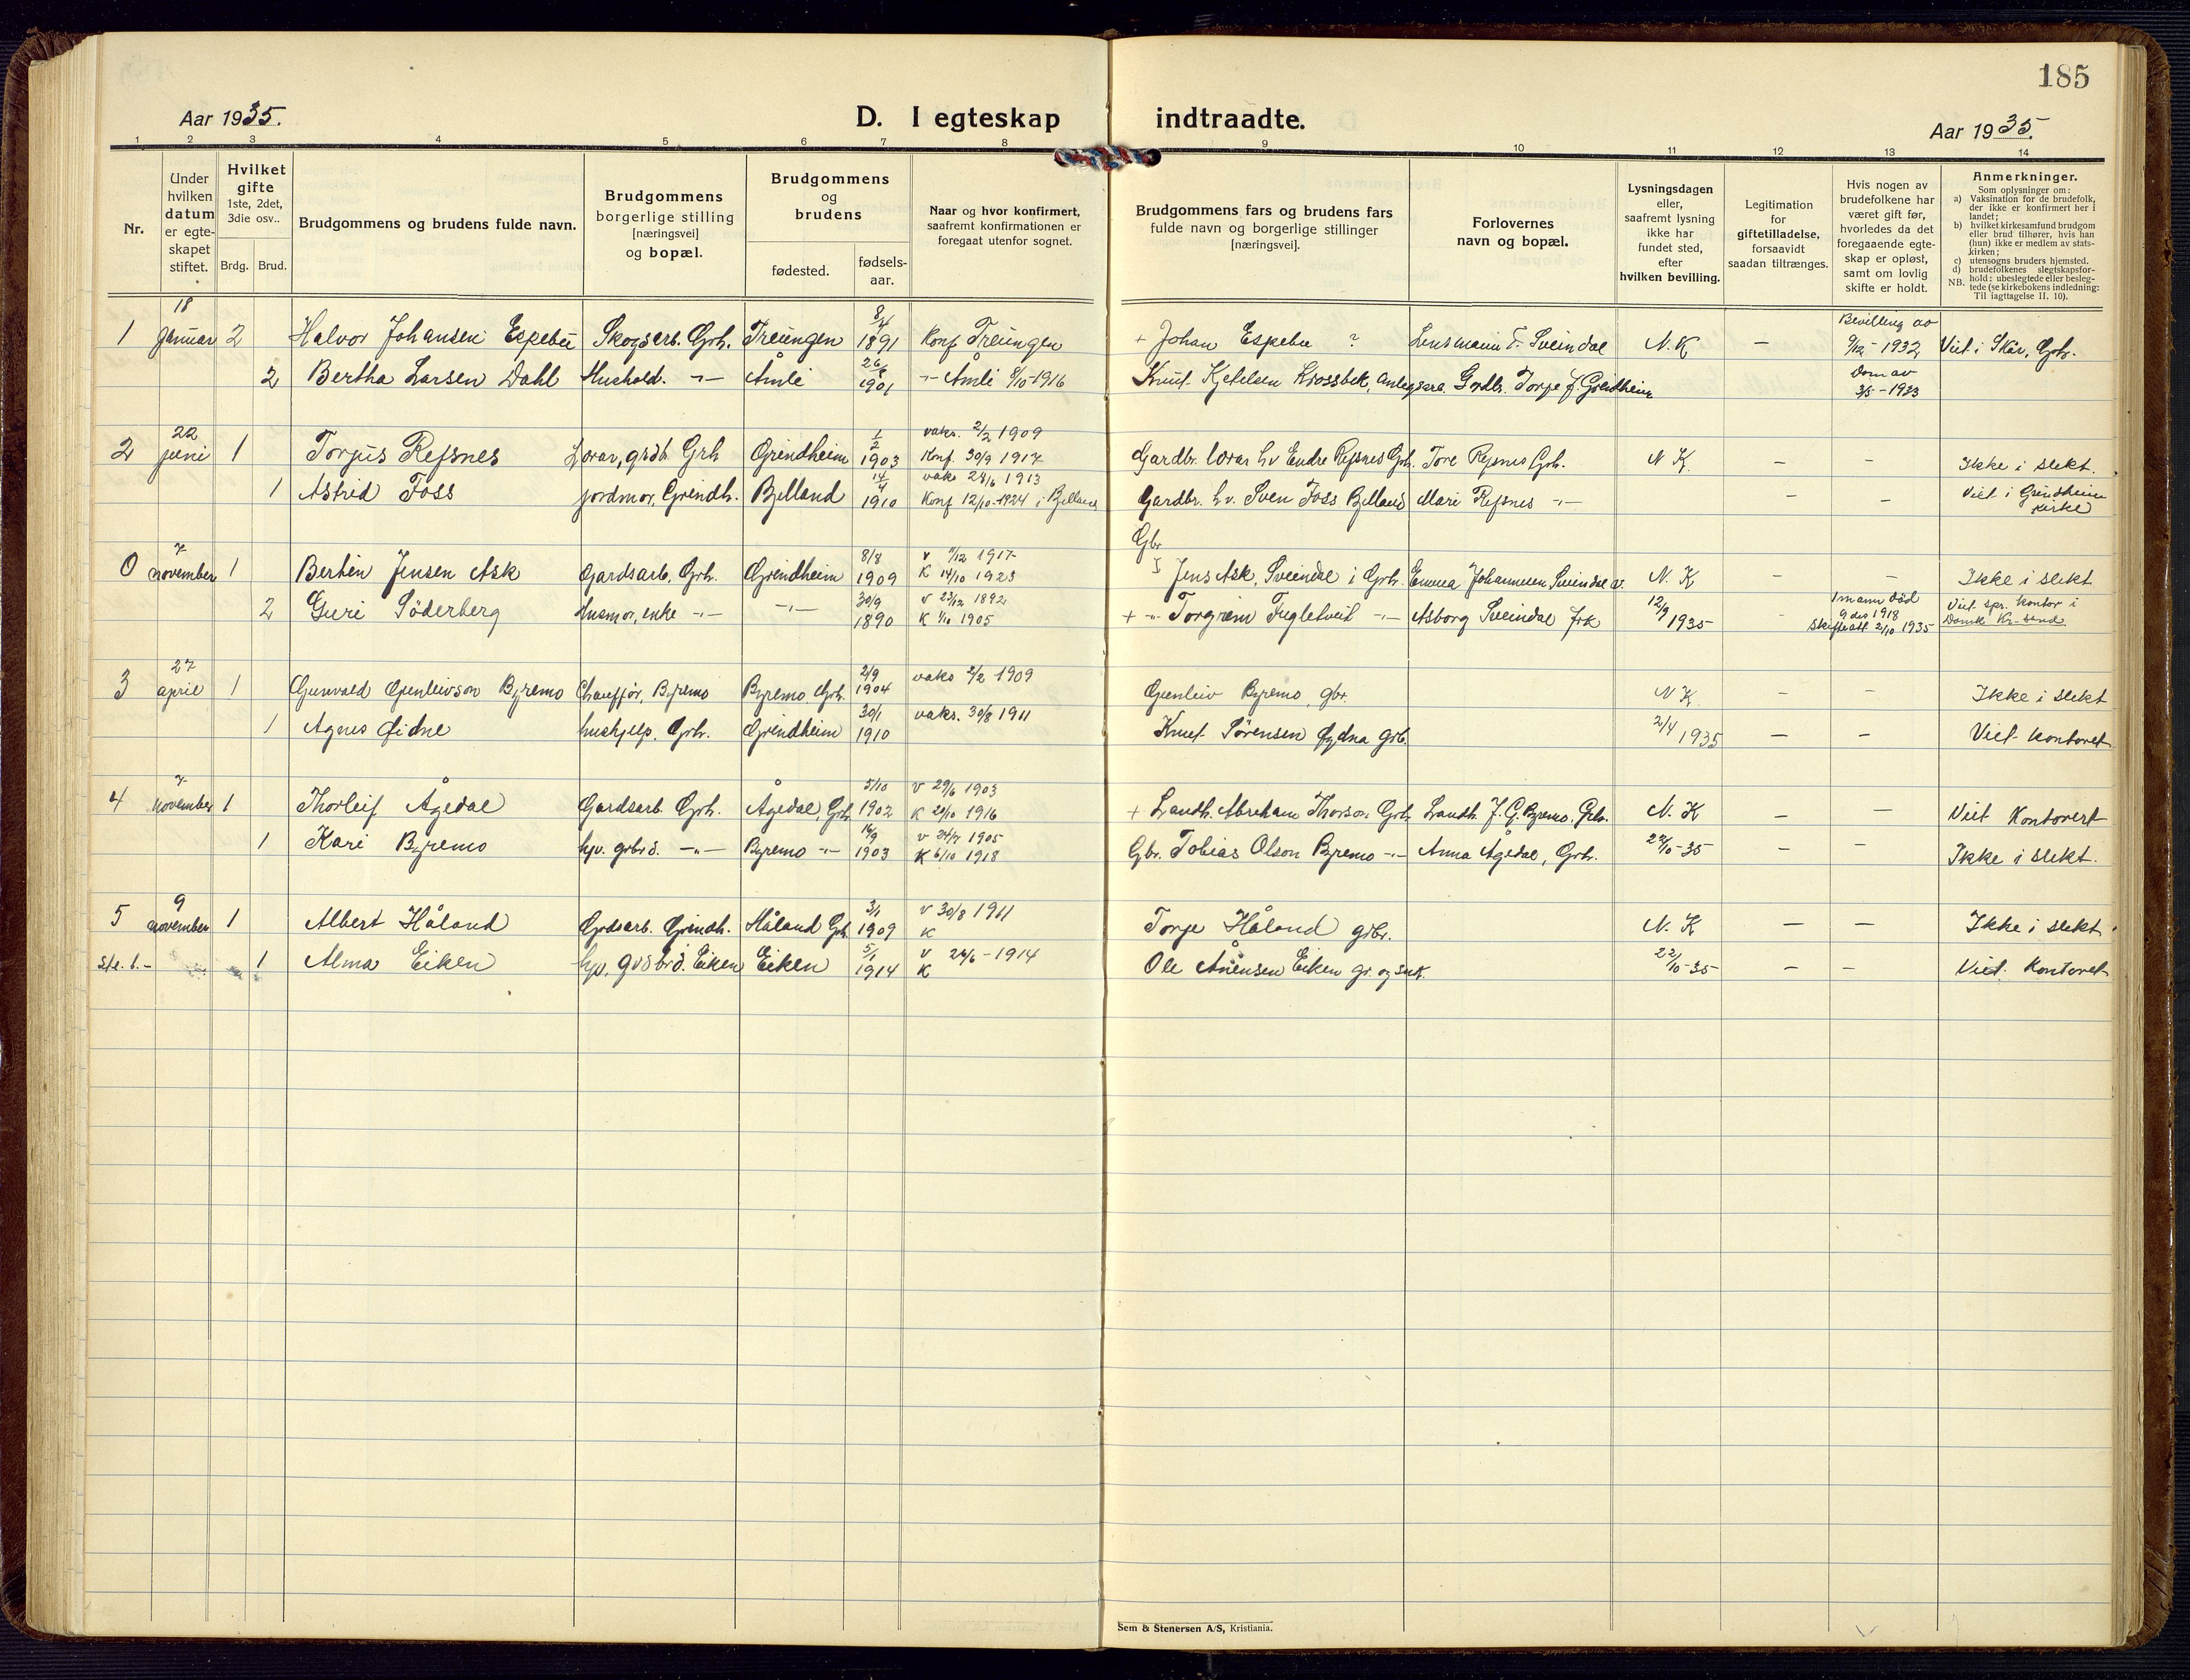 185
Aar 1935.
D. I egteskap indtraadte.
Aar 1935.
1 2 3 4 5 6 7 8 9 10 11 12 13 14
Nr.
Under
hvilken
datum
er egte-
skapet
stiftet.
Hvilket
gifte
1ste, 2det,
3die osv..
Brdg. Brud.
Brudgommens og brudens fulde navn.
Brudgommens
borgerlige stilling
[næringsvei]
og bopæl.
Brudgommens
og
brudens
fødested.
fødsels-
aar.
Naar og hvor konfirmert,
saafremt konfirmationen er
foregaat utenfor sognet.
Brudgommens fars og brudens fars
fulde navn og borgerlige stillinger
[næringsvei].
Forlovernes
navn og bopæl.
Lysningsdagen
eller,
saafremt lysning
ikke har
fundet sted,
efter
hvilken bevilling.
Legitimation
for
giftetilladelse,
forsaavidt
saadan tiltrænges.
Hvis nogen av
brudefolkene har
været gift før,
hvorledes da det
foregaaende egte-
skap er opløst,
samt om lovlig
skifte er holdt.
Anmerkninger.
Som oplysninger om:
a) Vaksination for de brudefolk,
der ikke er konfirmert her i
landet;
b) hvilket kirkesamfund brudgom
eller brud tilhører, hvis han
(hun) ikke er medlem av stats-
kirken;
c) utensogns bruders hjemsted.
d) brudefolkenes slegtskapsfor-
hold: ubeslegtede eller besleg-
NB. tede (se kirkebokens indledning:
Til iagttagelse II. 10).
1 18 Januar 2 Halvor Johansen Espebu Skogsarb. Grh. Treungen 1891 Konf Treungen + Johan Espebu ? Lensmann T. Sveindal N.K — Bevilling av 9/12-1932 Viet i Skår, Grh.
2 Bertha Larsen Dahl Hushold. -"- Åmli 26/8 1901 -"- Åmli 8/10-1916 Knut Kjetelsen Krossbek, Grdbr. Torje J. Grindheim Dom av 3/5-1933
2 22 juni 1 Torjus Refsnes Grh Grindheim 1/2 1903 vaks. 2/2 1909 Konf 30/9 1917 Gardbr. Endre Refsnes Grh. Tore Refsnes Grh. N K. — — Ikke i slekt.
1 Astrid Foss jordmor, Grindh. Bjelland 14/4 1910 vaks 24/6 1913 Konf 12/10-1924 i Bjelland Gardbr. h.v. Sven Foss Bjelland Mari Refsnes -"- — — Viet i Grindheim kirke
Gbr
0 7 november 1 Bertin Jensen Ask Gardsarb, Grh. Grindheim 8/8 1909 v 1917 K 14/10 1923 Jens Ask, Sveindal i Grh. Emma Johannesen Sveindal N.K — — Ikke i slekt
2 Guri Söderberg Husmor, enke -"- -"- 30/9 1890 v 23/12 1892 K 1/10 1905 + -"- Torgrim Fugletveit -"- Asborg Sveindal 12/9 1935 1 mann död 9 des 1918 Skifteatt 2/10 1935 Viet spr. kontor i
3 27 april 1 Gunvald Gunleivson Byremo Chauffjør, Byremo Byremo Grh. 2/9 1904 vaks 2/2 1909 Gunleiv Byremo, gbr. N K. — — Ikke i slekt
1 Agnes Øidne hushjelp, Grh. Grindheim 30/1 1910 vaks. 30/8 1911 Knut Sørensen Øydna grb. 2/4 1935 — — Viet kontoret
4 7 november 1 Thorleif Ågedal Gardsarb. Grh. Ågedal, Grh 5/10 1902 v 29/6 1903 K 1916 + Landh. Abraham Thorson Grh Landh. J. G. Byremo, Grh. N.K — — Viet Kontoret
1 Kari Byremo hjv. grbrd. -"- Byremo -"- 16/9 1903 v 24/7 1905 K 6/10 1918 Gbr. Tobias Olson Byremo -"- Anna Ågedal, Grh. 22/10-35 — — Ikke i slekt.
5 9 november 1 Albert Håland Grdsarb. Grindh. Håland Grh. 3/1 1909 v 30/8 1911 K Torje Håland grbr. N.K — — Ikke i slekt
1 Alma Eiken Eiken Eiken 5/1 1914 v 24/6-1914 K Ole Ånensen Eiken 22/10-35 — — Viet Kontoret
Sem & Stenersen A/S, Kristiania.